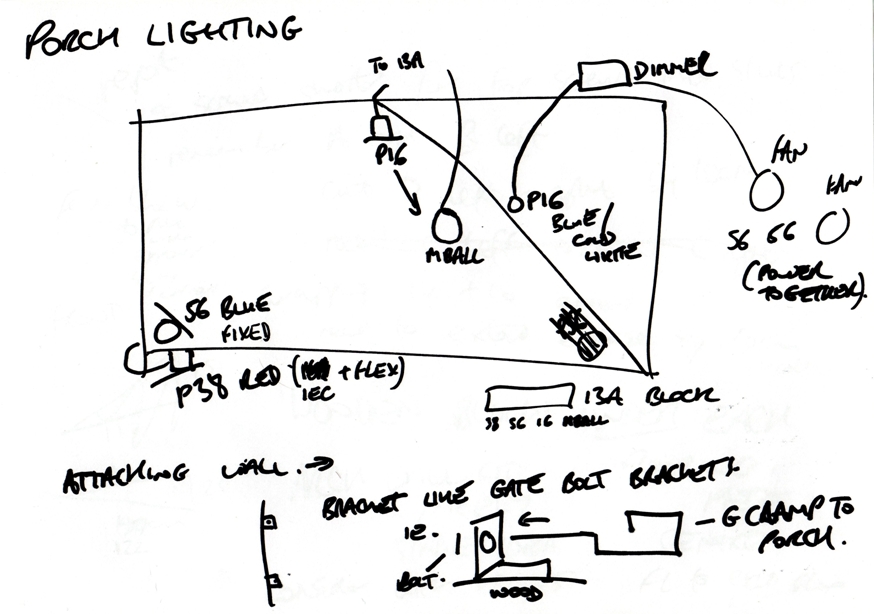 PORCH LIGHTING
TO 13A
DIMMER
P16
FAN
FAN
P16
BLUE/
COLD
WHITE
MBALL
56 66
(POWER
TOGETHER).
56 BLUE
FIXED
P38 RED ( + FLEX)
IEC
13A BLOCK
38 56 16 MBALL
ATTACHING WALL. →
BRACKET LIKE GATE BOLT BRACKETS.
IE.
- G CRAMP TO
PORCH.
BOLT.
WOOD